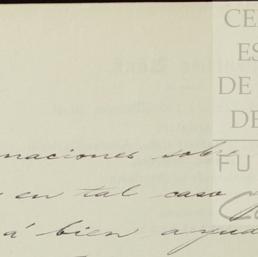 CE
ES
DE
DE
FU
maciones sobre
en tal caso
á bien ayud